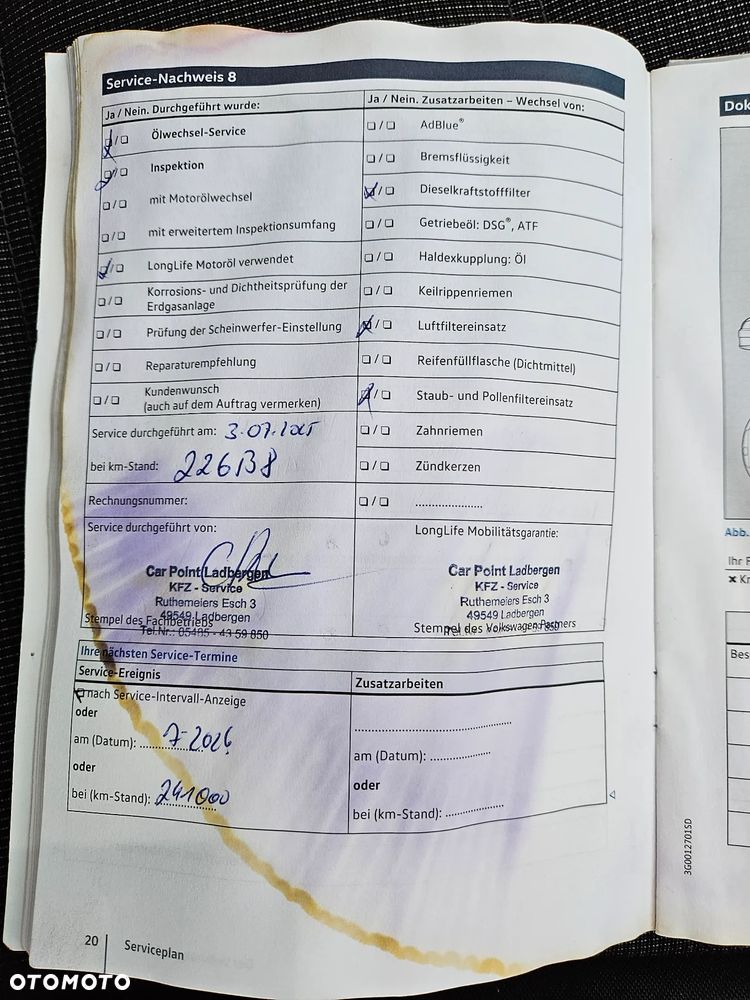 Service-Nachweis 8
Ja / Nein. Durchgeführt wurde:
Ölwechsel-Service
Inspektion
mit Motorölwechsel
mit erweitertem Inspektionsumfang
LongLife Motoröl verwendet
Korrosions- und Dichtheitsprüfung der
Erdgasanlage
Prüfung der Scheinwerfer-Einstellung
Reparaturempfehlung
Kundenwunsch
(auch auf dem Auftrag vermerken)
Service durchgeführt am: 3.07.2025
bei km-Stand: 226138
Rechnungsnummer:
Service durchgeführt von:
Car Point Ladbergen
KFZ - Service
Ruthemeiers Esch 3
49549 Ladbergen
Stempel des Fachbetriebs
Tel.Nr.: 05485 - 43 59 850
Ja / Nein. Zusatzarbeiten – Wechsel von:
AdBlue®
Bremsflüssigkeit
Dieselkraftstofffilter
Getriebeöl: DSG®, ATF
Haldexkupplung: Öl
Keilrippenriemen
Luftfiltereinsatz
Reifenfüllflasche (Dichtmittel)
Staub- und Pollenfiltereinsatz
Zahnriemen
Zündkerzen
LongLife Mobilitätsgarantie:
Car Point Ladbergen
KFZ - Service
Ruthemeiers Esch 3
49549 Ladbergen
Stempel des Volkswagen Partners
Ihre nächsten Service-Termine
Service-Ereignis
nach Service-Intervall-Anzeige
oder
am (Datum): 7-2026
oder
bei (km-Stand): 241000
Zusatzarbeiten
am (Datum):
oder
bei (km-Stand):
20
Serviceplan
Dok
Abb.
Ihr F
Bes
3G0012701SD
OTOMOTO